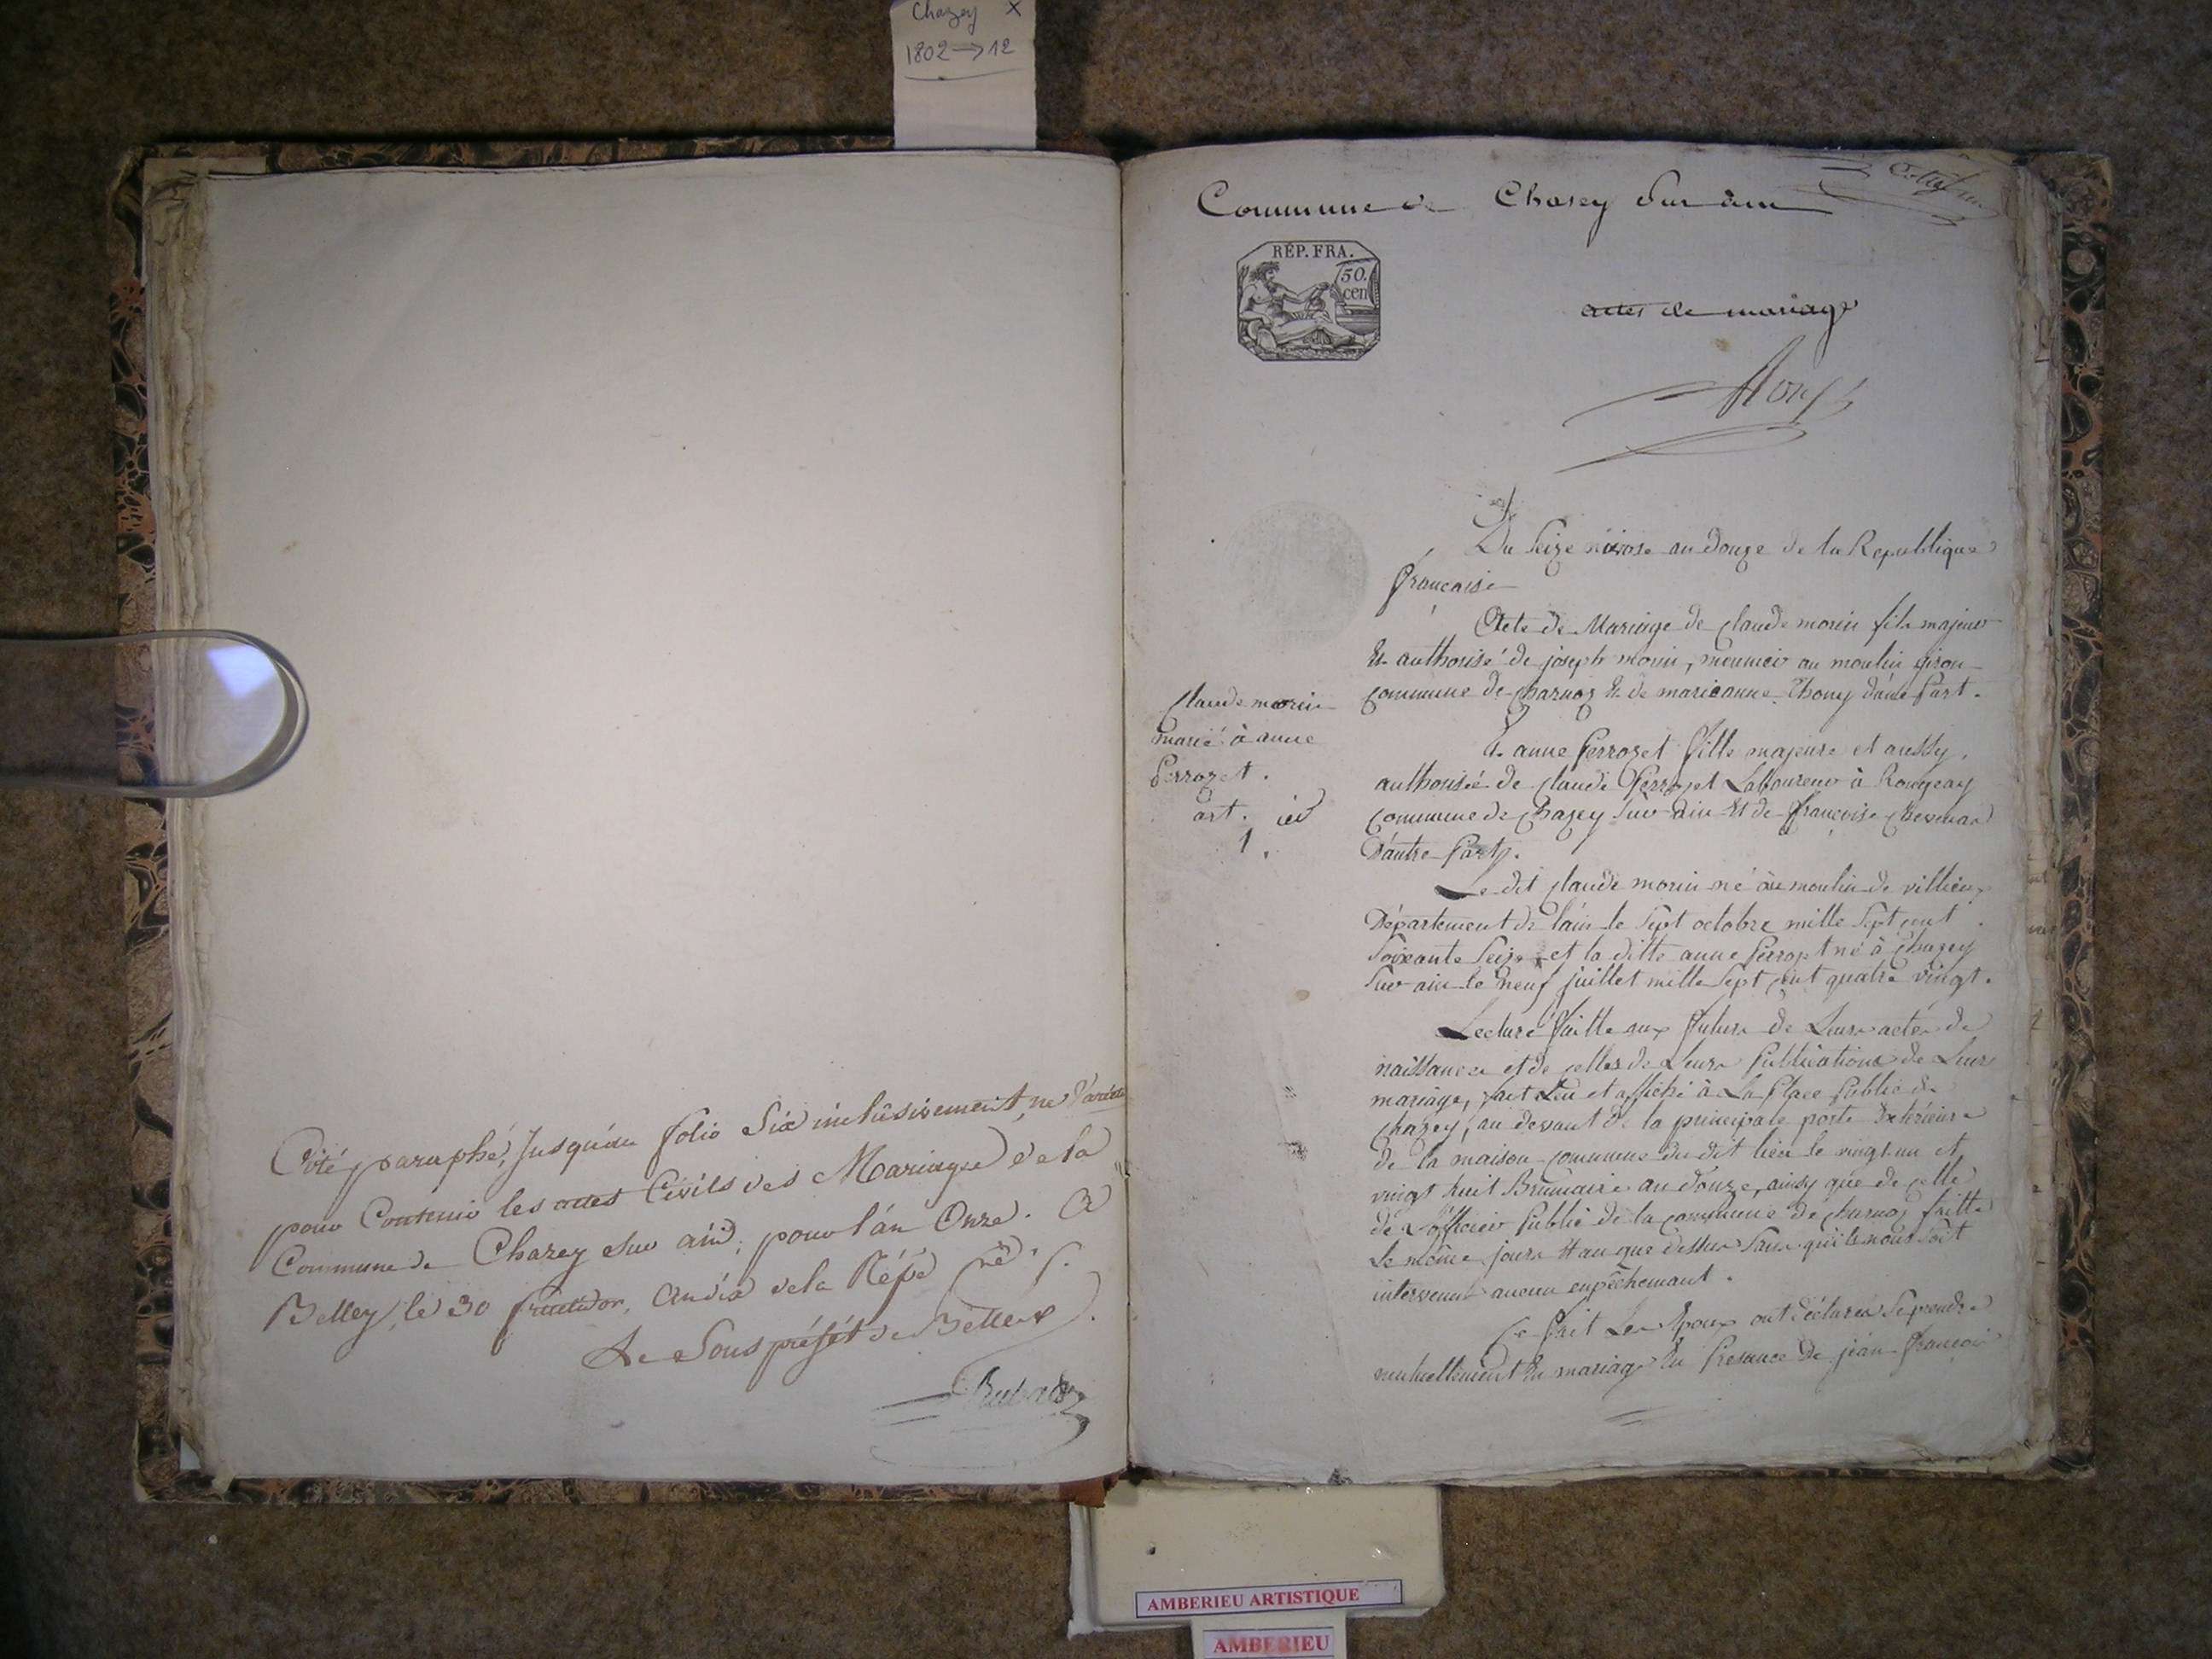 Chazey X
1802→12
Coté, paraphé, Jusqu'au folio Six inclusivement, ne Varietur
pour Contenir les actes Civils des Mariages de la
Commune de Chazey sur ain, pour l'an Onze. A
Belley, le 30 fructidor, an dix de la Répe
Le Sous préfét de Belley
Commune de Chasey Sur ain
RÉP. FRA.
50.
cen
actes de mariage
Du Seize nivose an Douze de la Republique
française
Acte de Mariage de Claude morin fils majeur
Et authorisé de joseph morin, meunier au moulin giron
Commune de Charnoz Et de marieanne Thony d'une Part.
Claude morin
marié à anne
Perrozet.
art. ier
1.
Et anne Perrozet fille majeure et aussy
authorisée de Claude Perrozet Laboureur à Rongeay
Commune de Chazey Sur ain Et de françoise
D'autre Part.
Le dit Claude morin né au moulin de villieu
Département de l'ain le Sept octobre mille Sept Cent
Soixante Seize et la ditte anne Perrozet né à Chazey
Sur ain le neuf juillet mille Sept Cent quatre vingt.
Lecture faitte aux futurs de Leurs actes de
naissances et de celles de Leurs Publications de Leur
mariage, fait Leu et affiché à La Place Public de
Chazey, au devant de la principale porte Exterieure
de la maison Commune du dit lieu le vingt un et
vingt huit Brumaire an Douze, ainsy que de Celle
de L'officier Public de la Commune de Charnoz faitte
Le même jours Et an que dessus Sans qu'ils nous Soit
intervenu aucun enpêchemant.
Ce fait Les Epoux ont déclarés Se prendre
mutuellement En mariage En Presence de jean françois
AMBERIEU ARTISTIQUE
AMBERIEU